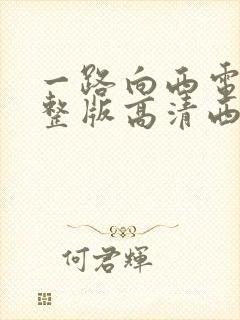 一路向西電
整版高清西
何君輝